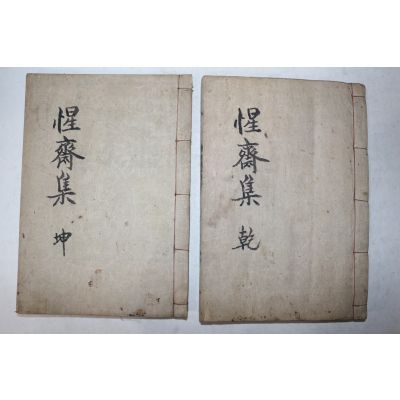 惺齋集 乾
惺齋集 坤